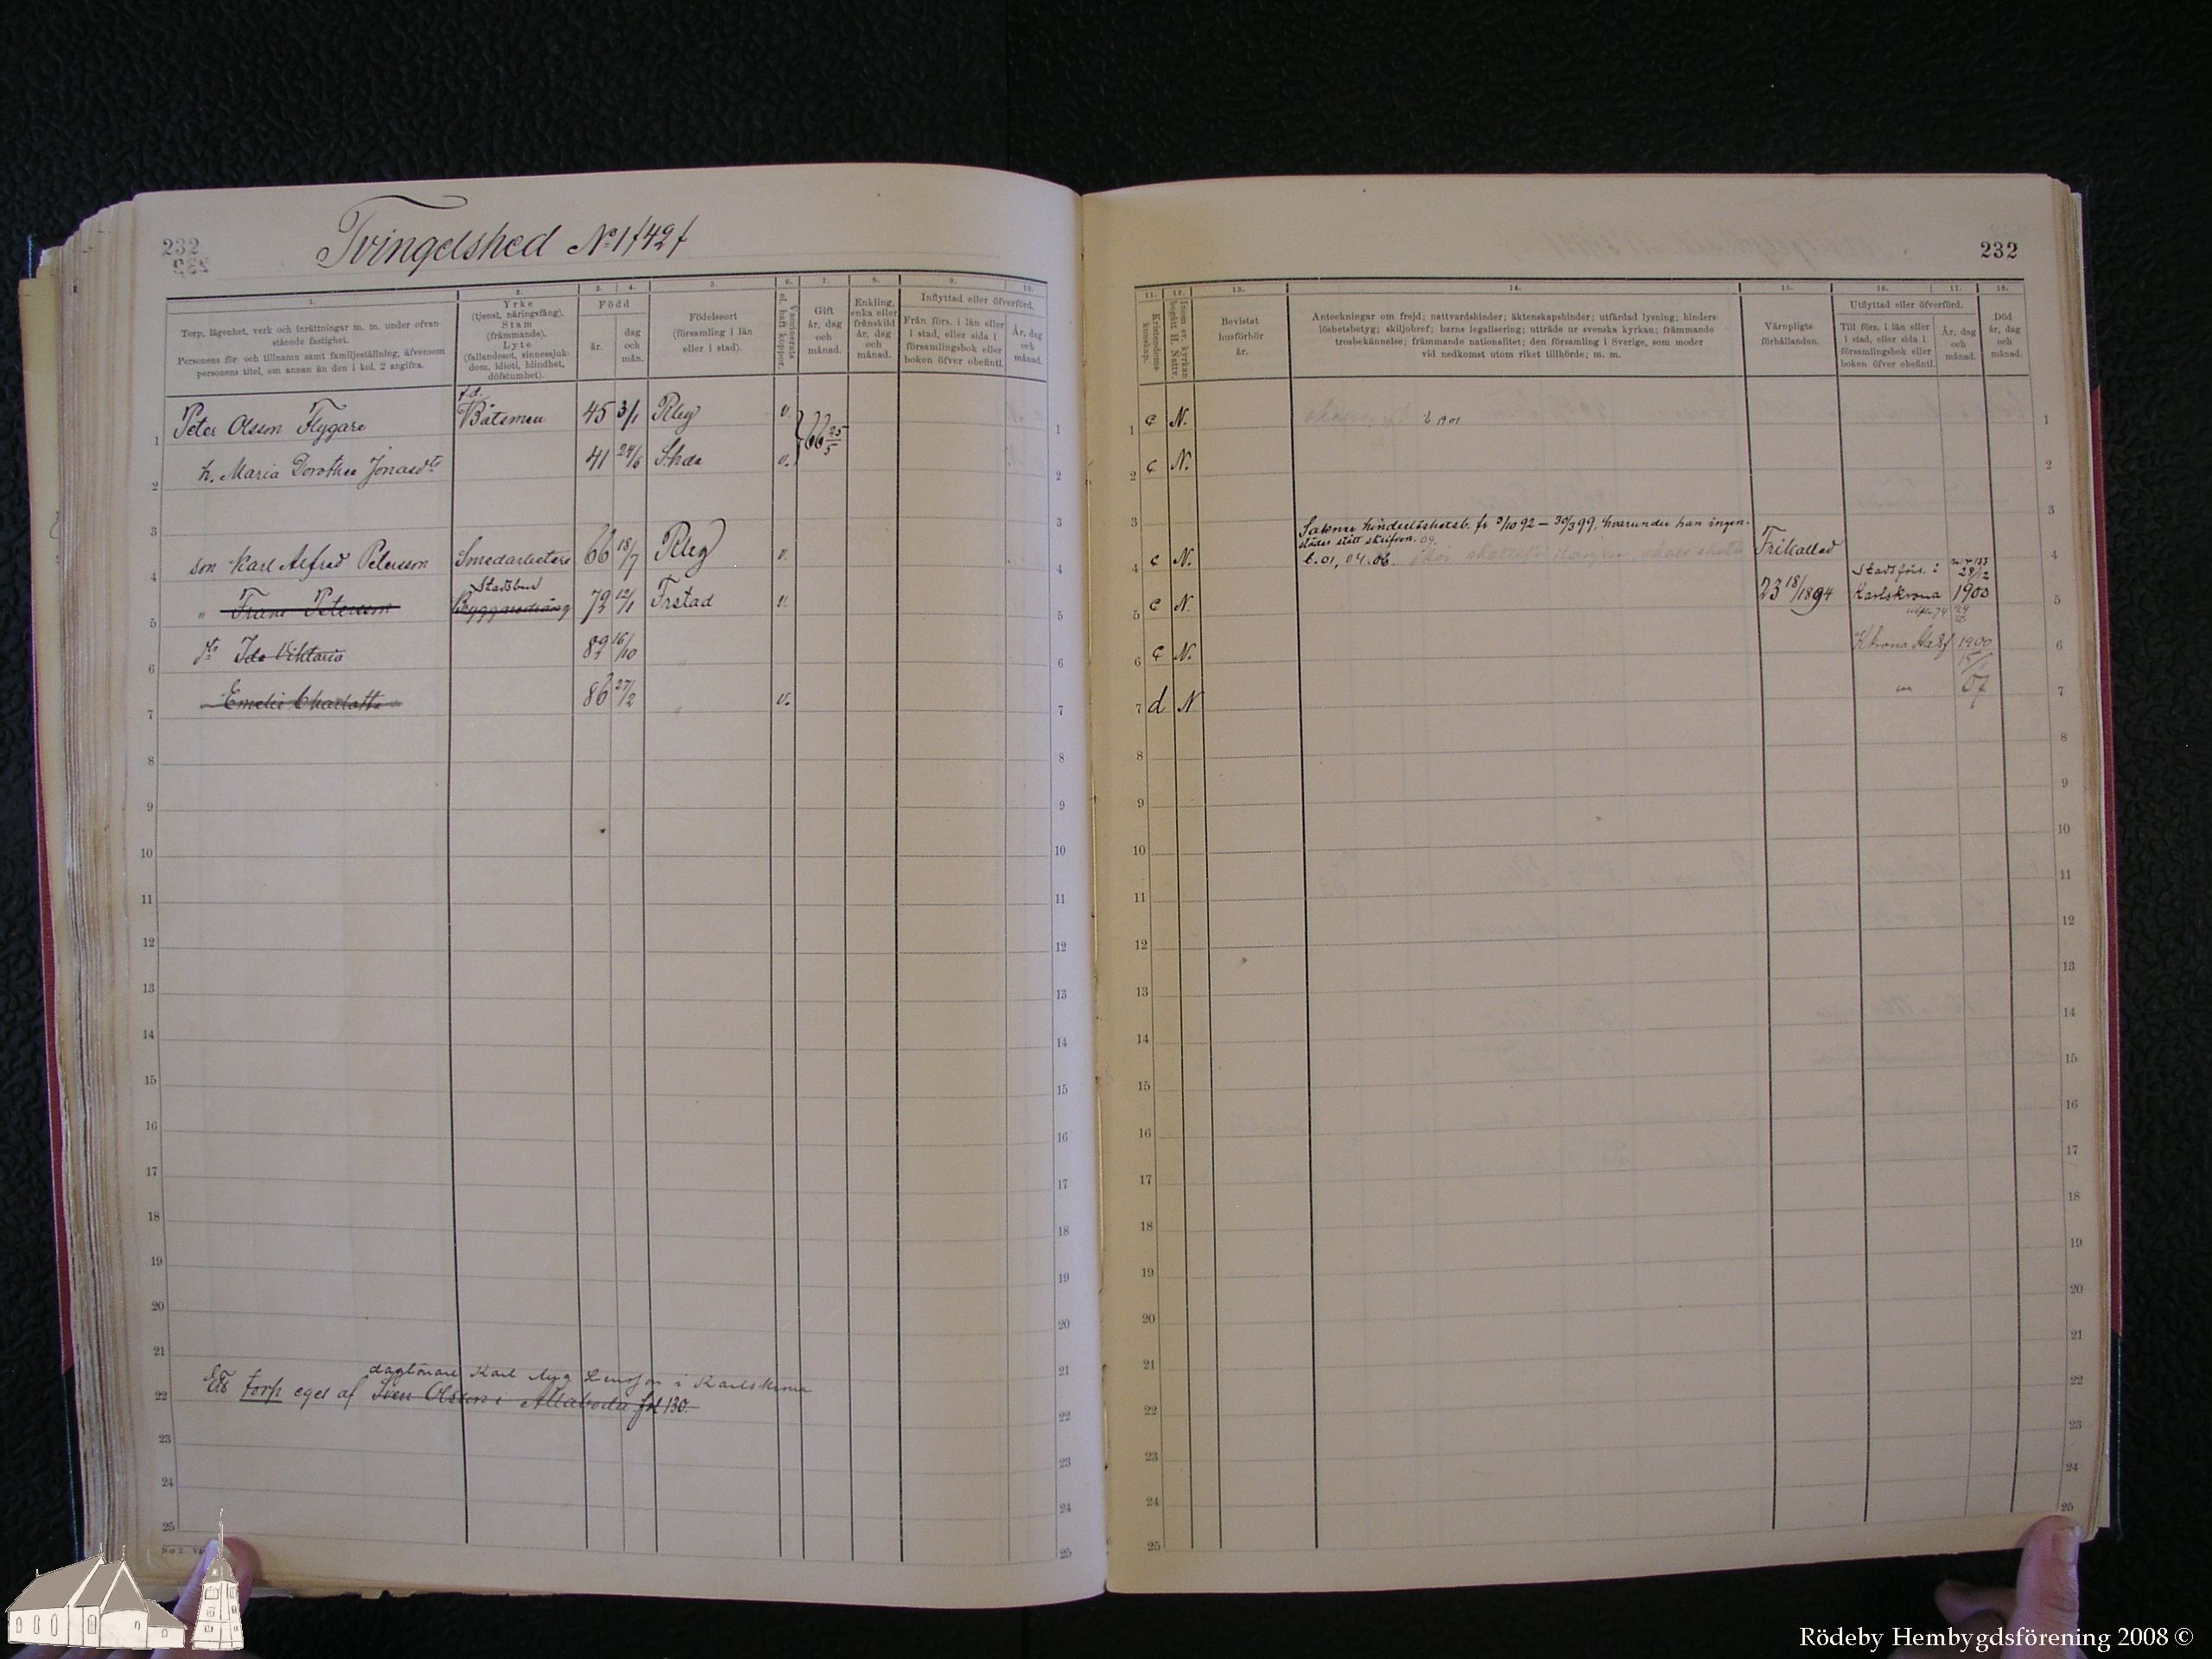 232
Tvingelshed No 1 f 42 f
232
1. 2. 3. 4. 5. 6. 7. 8. 9. 10.
Torp, lägenhet, verk och inrättningar m. m. under ofvan-
stående fastighet.
Personens för- och tillnamn samt familjeställning, äfvensom
personens titel, om annan än den i kol. 2 angifna.
Yrke
(tjenst, näringsfång).
Stam
(främmande).
Lyte
(fallandesot, sinnessjuk-
dom, idioti, blindhet,
döfstumhet).
Född
år.
dag
och
mån.
Födelseort
(församling i län
eller i stad).
Vaccinerats
el. haft koppor.
Gift
år, dag
och
månad.
Enkling,
enka eller
frånskild
år, dag
och
månad.
Inflyttad eller öfverförd.
Från förs. i län eller
i stad, eller sida i
församlingsbok eller
boken öfver obefintl.
År, dag
och
månad.
Peter Olsson Flygare f.d. Båtsman 45 3/1 Rleg v. 66 25/5
h. Maria Dorothea Jonasdtr 41 24/6 S:hda v.
son Karl Alfred Petersson Smedarbetare 66 18/7 Rleg v.
" Frans Petersson Stadsbud Bryggaredräng 72 12/1 Frstad v.
dtr Ida Viktoria 82 16/10
Emelie Charlotta 86 27/2 " v.
daglönare Karl Aug
Ett torp eges af Sven Olsson i Allaboda fol 130.
i Karlskrona
11. 12. 13. 14. 15. 16. 17. 18.
Kristendoms-
kunskap.
Inom sv. kyrkan
begått H. Nattv.
Bevistat
husförhör
år.
Anteckningar om frejd; nattvardshinder; äktenskapshinder; utfärdad lysning; hinders-
löshetsbetyg; skiljobref; barns legalisering; utträde ur svenska kyrkan; främmande
trosbekännelse; främmande nationalitet; den församling i Sverige, som moder
vid nedkomst utom riket tillhörde; m. m.
Värnpligts-
förhållanden.
Utflyttad eller öfverförd.
Till förs. i län eller
i stad, eller sida i
församlingsbok eller
boken öfver obefintl.
År, dag
och
månad.
Död
år, dag
och
månad.
c N.
c N.
Saknar hinderlöshetsb. fr 9/10 92 – 30/3 99, hvarunder han ingen-
städes stått skrifven. 09.
c N. b. 01, 04. 06. Frikallad
c N. 23 18/1894 Stadsförs. i Karlskrona 28/12 1900
c N. Kkrona Stadsf 1900
d N " 07
Rödeby Hembygdsförening 2008 ©